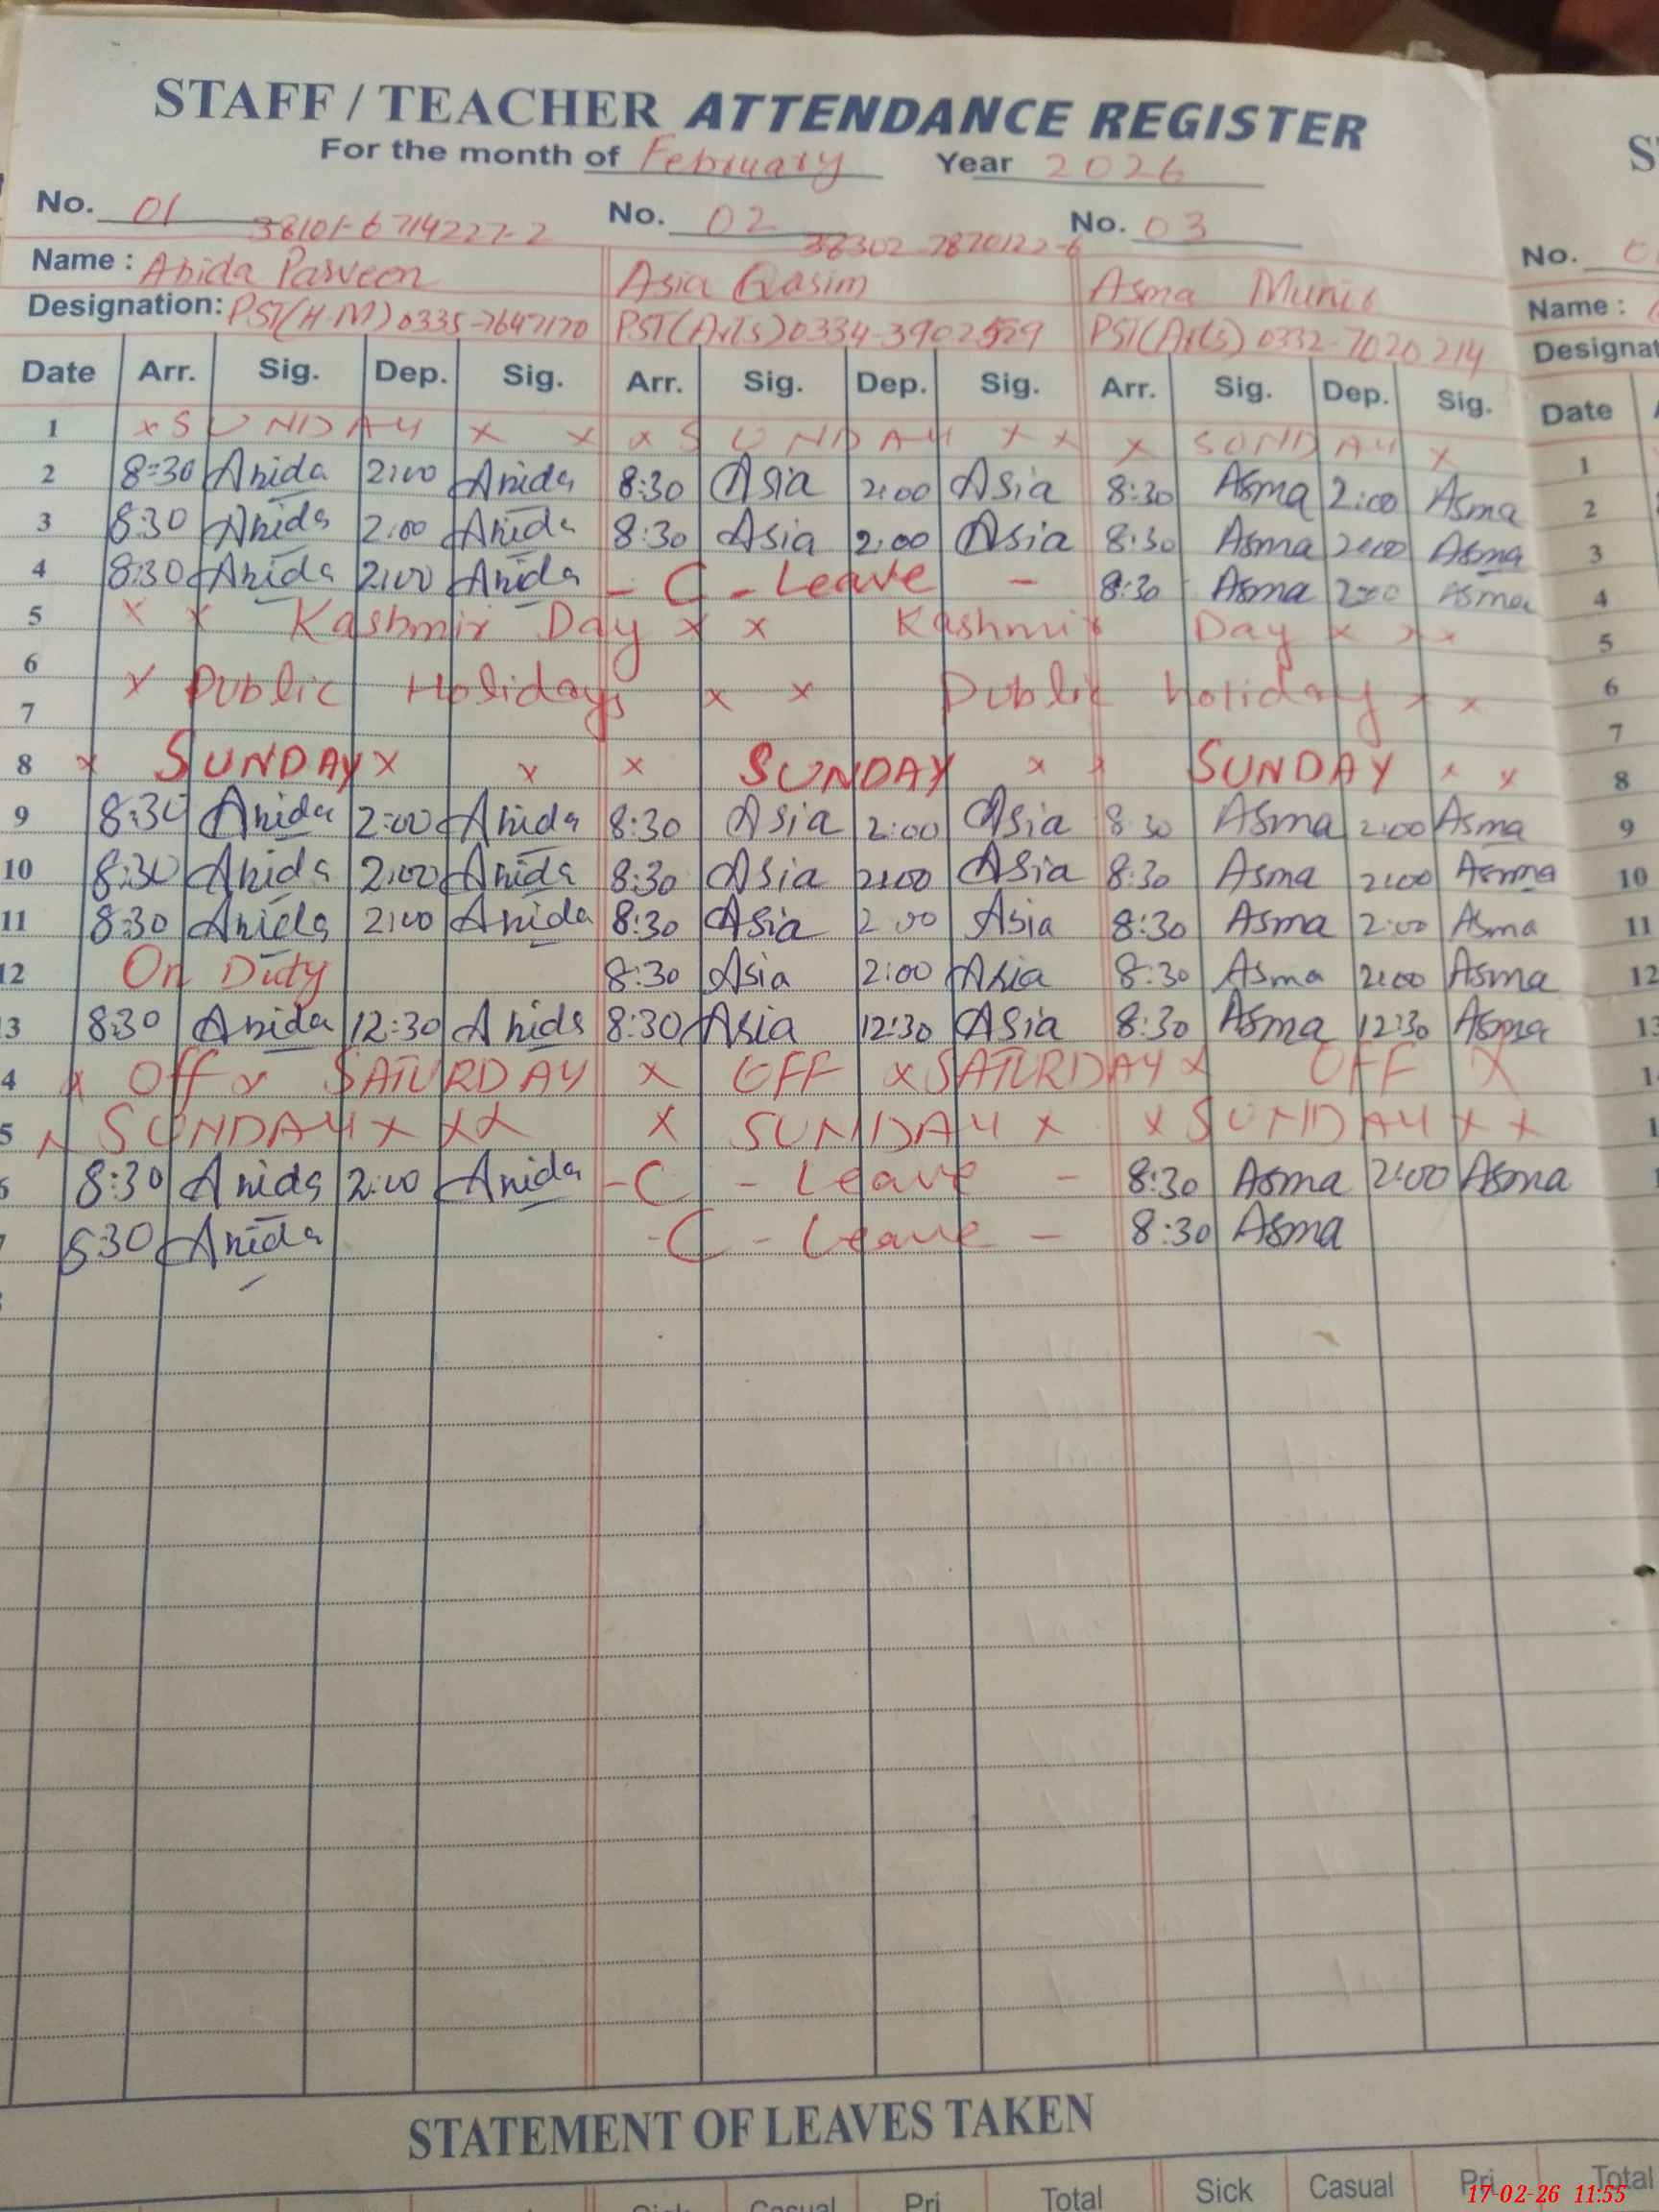 STAFF / TEACHER ATTENDANCE REGISTER
For the month of February Year 2026
No. 01 No. 02 No. 03
38101-6714227-2 38302-7870122-6
Name : Abida Parveen Asia Qasim Asma Munir
Designation: PST(H.M) 0335-7647170 PST(Arts) 0334-3902559 PST(Arts) 0332-7020214
Date Arr. Sig. Dep. Sig. Arr. Sig. Dep. Sig. Arr. Sig. Dep. Sig.
1 x SUNDAY x x x SUNDAY x x x SUNDAY x
2 8:30 Abida 2:00 Abida 8:30 Asia 2:00 Asia 8:30 Asma 2:00 Asma
3 8:30 Abida 2:00 Abida 8:30 Asia 2:00 Asia 8:30 Asma 2:00 Asma
4 8:30 Abida 2:00 Abida - C - Leave - 8:30 Asma 2:00 Asma
5 x x Kashmir Day x x Kashmir Day x x x
6 x Public Holidays x x Public holiday x x
7
8 x SUNDAY x x x SUNDAY x x SUNDAY x x
9 8:30 Abida 2:00 Abida 8:30 Asia 2:00 Asia 8 30 Asma 2:00 Asma
10 8:30 Abida 2:00 Abida 8:30 Asia 2:00 Asia 8:30 Asma 2:00 Asma
11 8:30 Abida 2:00 Abida 8:30 Asia 2:00 Asia 8:30 Asma 2:00 Asma
12 On Duty 8:30 Asia 2:00 Asia 8:30 Asma 2:00 Asma
3 8:30 Abida 12:30 Abida 8:30 Asia 12:30 Asia 8:30 Asma 12:30 Asma
4 x Off x SATURDAY x OFF x SATURDAY x OFF x
5 x SUNDAY x x x x SUNDAY x x SUNDAY x x
6 8:30 Abida 2:00 Abida - C - Leave - 8:30 Asma 2:00 Asma
8:30 Abida - C - Leave - 8:30 Asma
STATEMENT OF LEAVES TAKEN
Casual Pri Total Sick Casual Pri Total
No.
Name :
Designat
Date
1
2
3
4
5
6
7
8
9
10
11
12
17-02-26 11:55